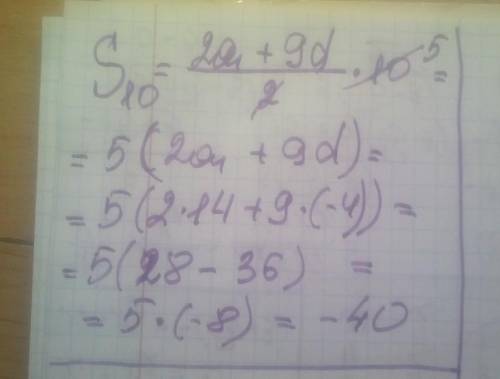 S₁₀ = (2a₁ + 9d)/2 · 10 ⁵ =
= 5 (2a₁ + 9d) =
= 5 (2 · 14 + 9 · (-4)) =
= 5 (28 - 36) =
= 5 · (-8) = -40